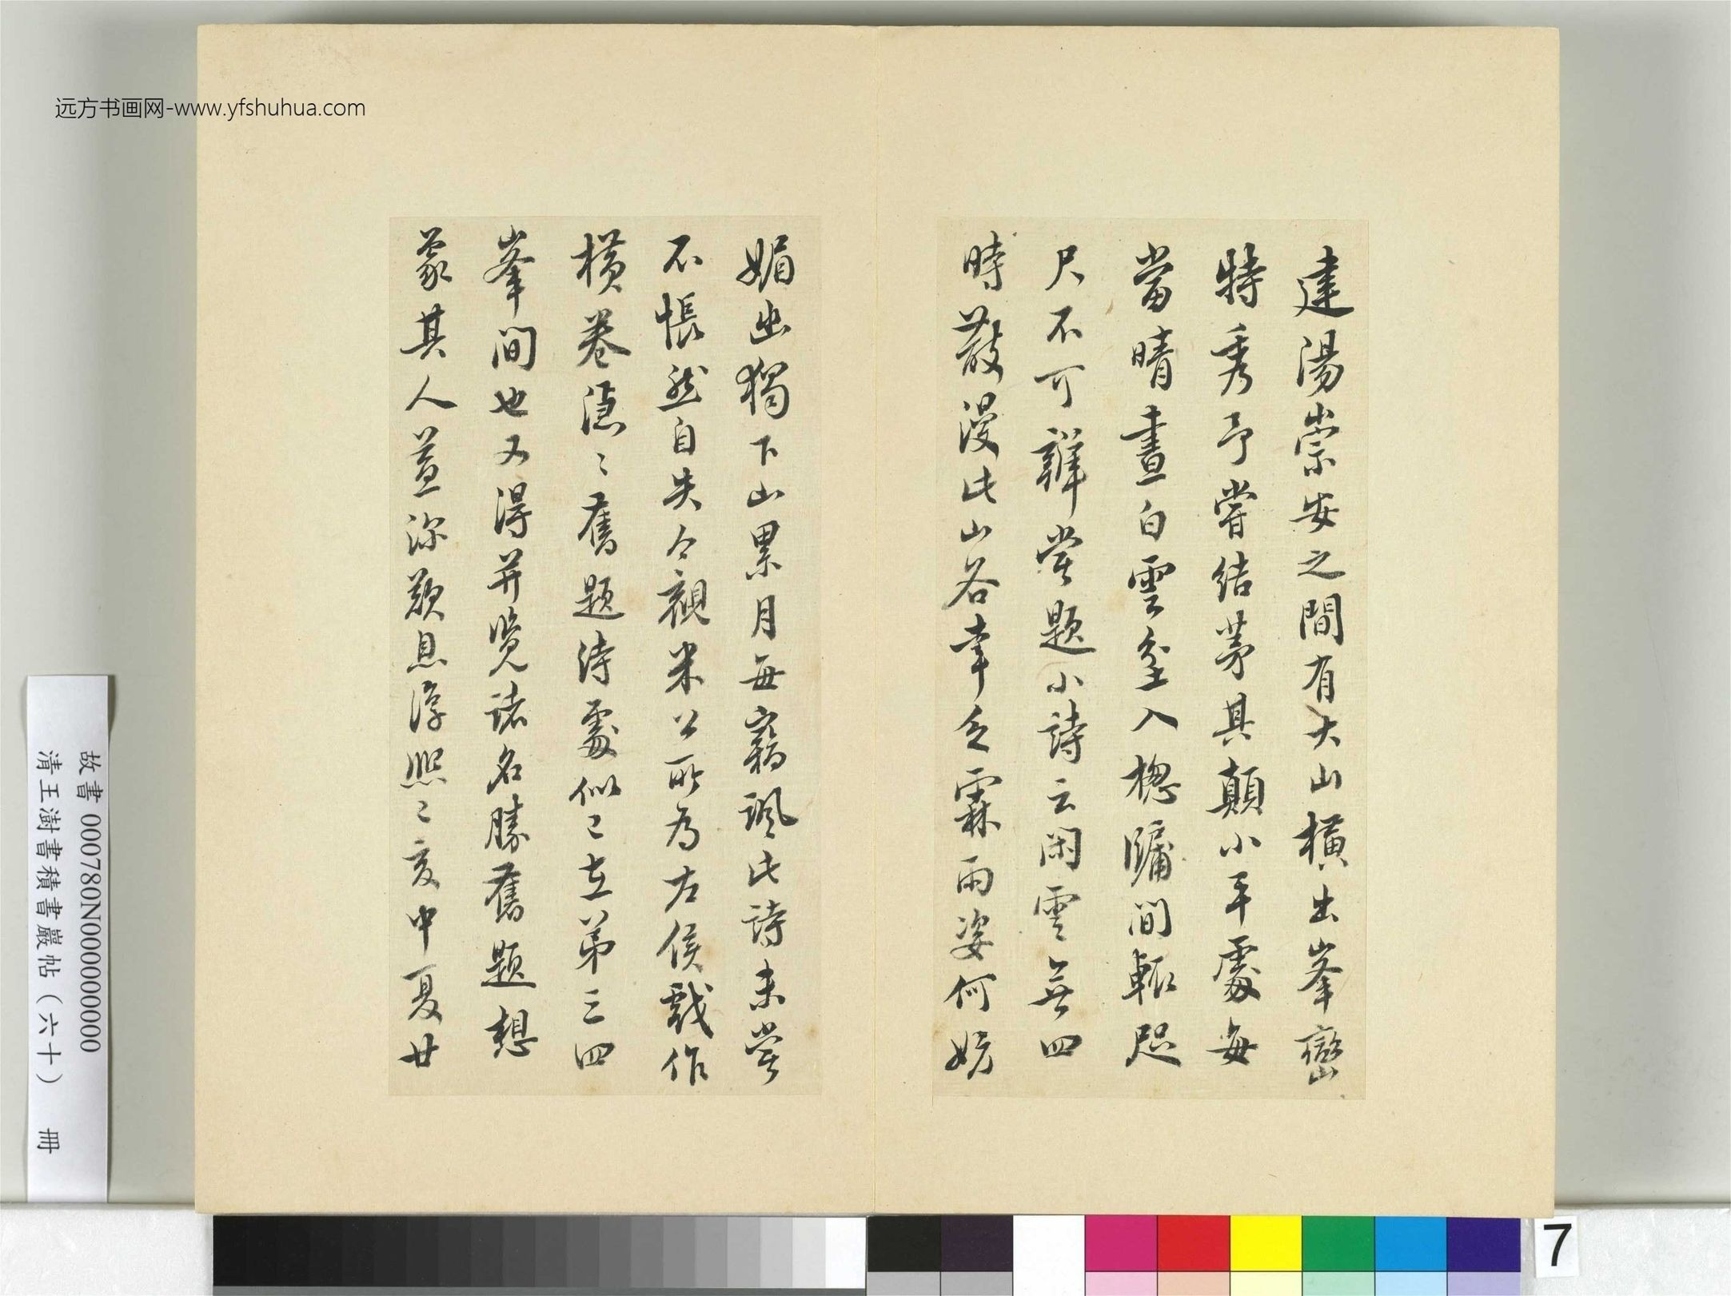 建陽崇安之間有大山橫出峯巒
特秀予嘗結茅其顛小平處每
當晴晝白雲坌入窗牖間輒咫
尺不可辨嘗題小詩云閑雲無四
時散漫此山谷幸乏霖雨姿何妨
媚幽獨下山累月每竊諷此詩未嘗
不悵然自失今觀米公所為左侯戲作
橫卷隱〻舊題詩處似已在第三四
峯間也又得并覽諸名勝舊題想
象其人益深歎息淳熙己亥中夏廿
远方书画网-www.yfshuhua.com
故書 000780N000000000
清王澍書積書巖帖(六十) 冊
7